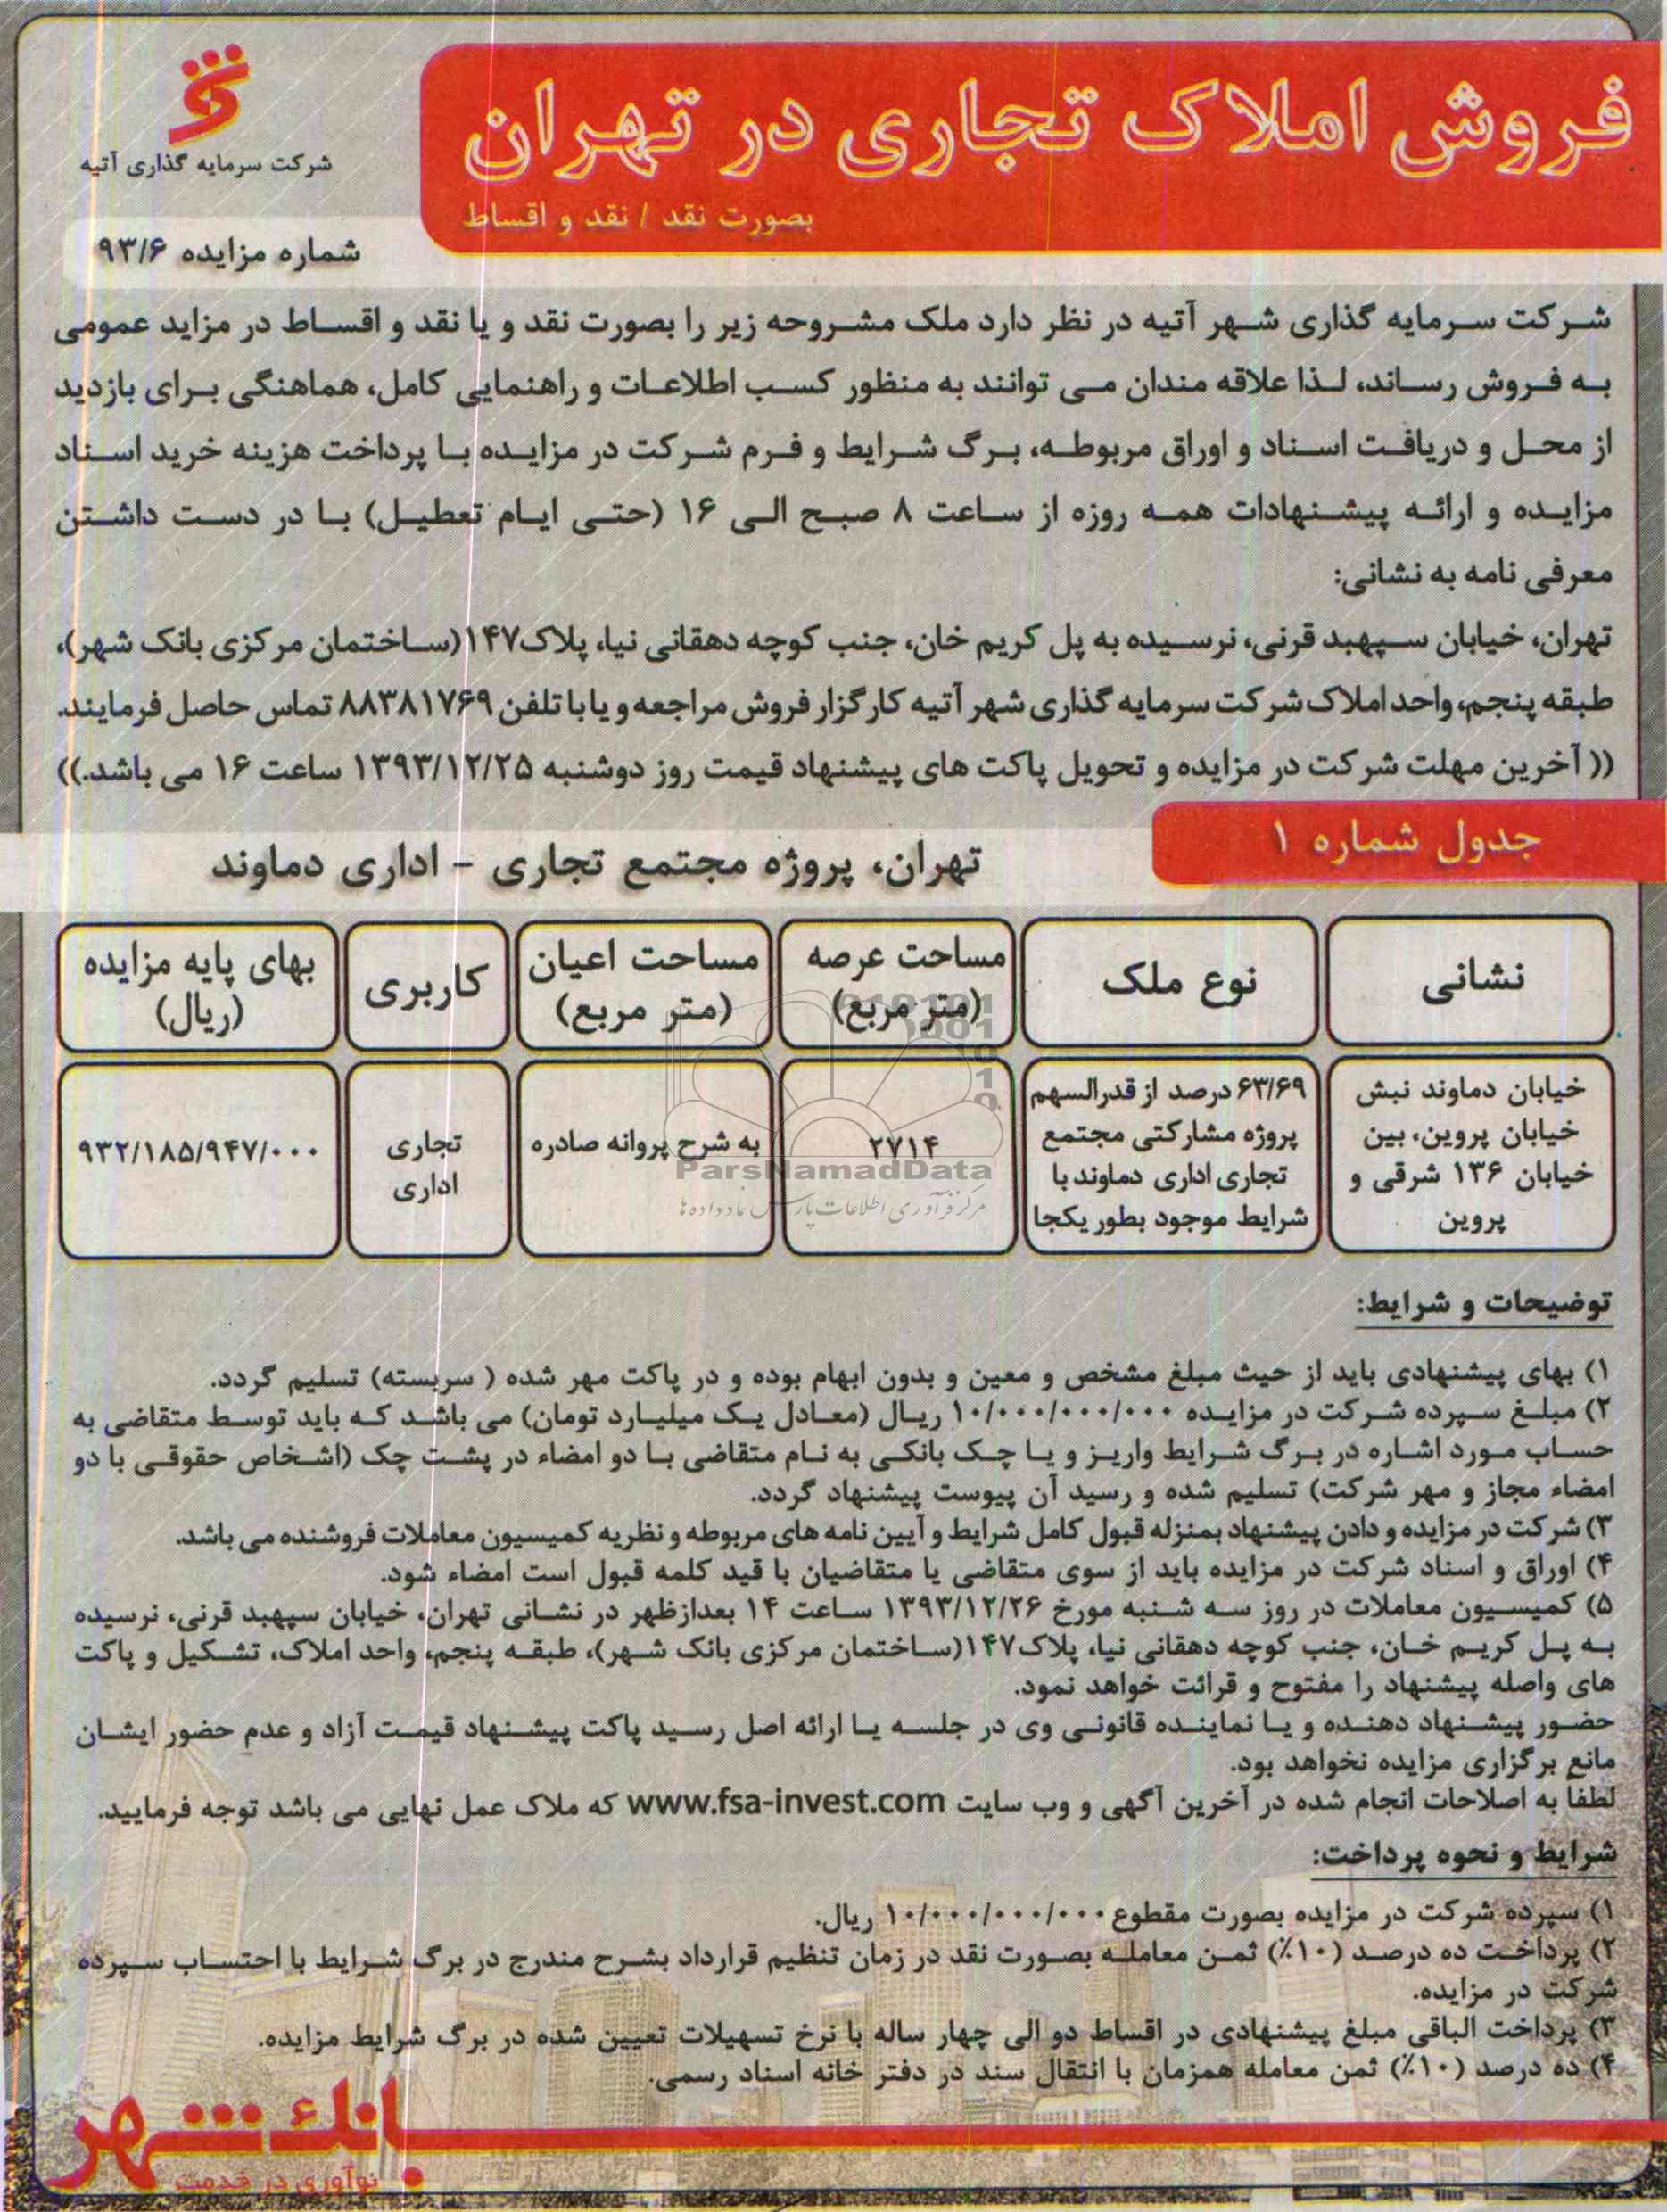 فروش املاک تجاری در تهران
بصورت نقد / نقد و اقساط
شرکت سرمایه گذاری آتیه
شماره مزایده ۹۳/۶
شرکت سرمایه گذاری شهر آتیه در نظر دارد ملک مشروحه زیر را بصورت نقد و یا نقد و اقساط در مزاید عمومی
به فروش رساند، لذا علاقه مندان می توانند به منظور کسب اطلاعات و راهنمایی کامل، هماهنگی برای بازدید
از محل و دریافت اسناد و اوراق مربوطه، برگ شرایط و فرم شرکت در مزایده با پرداخت هزینه خرید اسناد
مزایده و ارائه پیشنهادات همه روزه از ساعت ۸ صبح الی ۱۶ (حتی ایام تعطیل) با در دست داشتن
معرفی نامه به نشانی:
تهران، خیابان سپهبد قرنی، نرسیده به پل کریم خان، جنب کوچه دهقانی نیا، پلاک۱۴۷(ساختمان مرکزی بانک شهر)،
طبقه پنجم، واحد املاک شرکت سرمایه گذاری شهر آتیه کارگزار فروش مراجعه و یا با تلفن ۸۸۳۸۱۷۶۹ تماس حاصل فرمایند.
(( آخرین مهلت شرکت در مزایده و تحویل پاکت های پیشنهاد قیمت روز دوشنبه ۱۳۹۳/۱۲/۲۵ ساعت ۱۶ می باشد.))
جدول شماره ۱
تهران، پروژه مجتمع تجاری - اداری دماوند
نشانی
نوع ملک
مساحت عرصه
(متر مربع)
مساحت اعیان
(متر مربع)
کاربری
بهای پایه مزایده
(ریال)
خیابان دماوند نبش
خیابان پروین، بین
خیابان ۱۳۶ شرقی و
پروین
۶۳/۶۹ درصد از قدرالسهم
پروژه مشارکتی مجتمع
تجاری اداری دماوند با
شرایط موجود بطور یکجا
۲۷۱۴
به شرح پروانه صادره
تجاری
اداری
۹۳۲/۱۸۵/۹۴۷/۰۰۰
ParsNamadData
مرکز فرآوری اطلاعات پارس نماد داده ها
توضیحات و شرایط:
۱) بهای پیشنهادی باید از حیث مبلغ مشخص و معین و بدون ابهام بوده و در پاکت مهر شده ( سربسته) تسلیم گردد.
۲) مبلغ سپرده شرکت در مزایده ۱۰/۰۰۰/۰۰۰/۰۰۰ ریال (معادل یک میلیارد تومان) می باشد که باید توسط متقاضی به
حساب مورد اشاره در برگ شرایط واریز و یا چک بانکی به نام متقاضی با دو امضاء در پشت چک (اشخاص حقوقی با دو
امضاء مجاز و مهر شرکت) تسلیم شده و رسید آن پیوست پیشنهاد گردد.
۳) شرکت در مزایده و دادن پیشنهاد بمنزله قبول کامل شرایط و آیین نامه های مربوطه و نظریه کمیسیون معاملات فروشنده می باشد.
۴) اوراق و اسناد شرکت در مزایده باید از سوی متقاضی یا متقاضیان با قید کلمه قبول است امضاء شود.
۵) کمیسیون معاملات در روز سه شنبه مورخ ۱۳۹۳/۱۲/۲۶ ساعت ۱۴ بعدازظهر در نشانی تهران، خیابان سپهبد قرنی، نرسیده
به پل کریم خان، جنب کوچه دهقانی نیا، پلاک۱۴۷(ساختمان مرکزی بانک شهر)، طبقه پنجم، واحد املاک، تشکیل و پاکت
های واصله پیشنهاد را مفتوح و قرائت خواهد نمود.
حضور پیشنهاد دهنده و یا نماینده قانونی وی در جلسه یا ارائه اصل رسید پاکت پیشنهاد قیمت آزاد و عدم حضور ایشان
مانع برگزاری مزایده نخواهد بود.
لطفا به اصلاحات انجام شده در آخرین آگهی و وب سایت www.fsa-invest.com که ملاک عمل نهایی می باشد توجه فرمایید.
شرایط و نحوه پرداخت:
۱) سپرده شرکت در مزایده بصورت مقطوع ۱۰/۰۰۰/۰۰۰/۰۰۰ ریال.
۲) پرداخت ده درصد (۱۰٪) ثمن معامله بصورت نقد در زمان تنظیم قرارداد بشرح مندرج در برگ شرایط با احتساب سپرده
شرکت در مزایده.
۳) پرداخت الباقی مبلغ پیشنهادی در اقساط دو الی چهار ساله با نرخ تسهیلات تعیین شده در برگ شرایط مزایده.
۴) ده درصد (۱۰٪) ثمن معامله همزمان با انتقال سند در دفتر خانه اسناد رسمی.
بانک شهر
نوآوری در خدمت